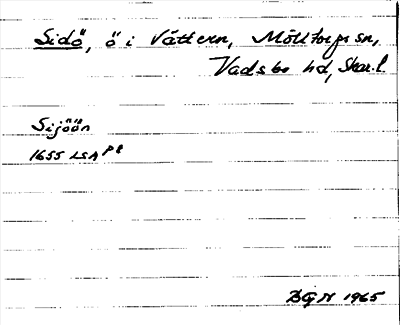 Sidö, ö i Vättern, Mölltorps sn,
Vadsbo hd, Skar.l.
Sijöön
1655 LSA pl
BGN 1965